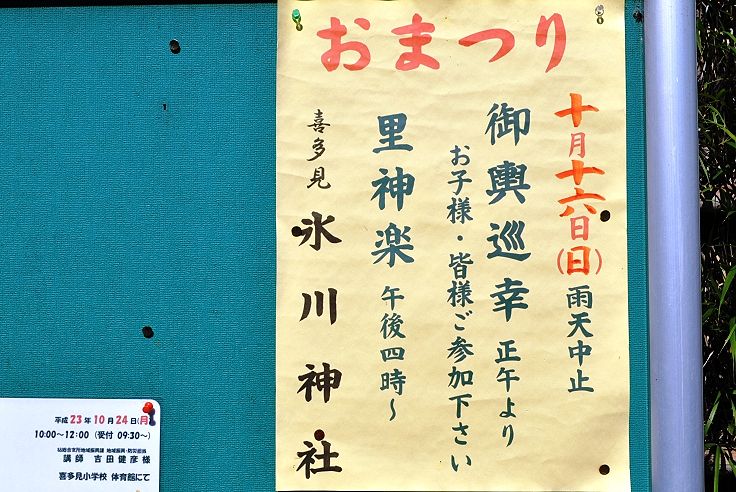 おまつり
十月十六日(日)雨天中止
御輿巡幸 正午より
お子様・皆様ご参加下さい
里神楽 午後四時〜
喜多見 氷川神社
平成23年10月24日(月)
10:00〜12:00(受付 09:30〜)
砧総合支所地域振興課 地域振興・防災担当
講師 吉田健彦様
喜多見小学校 体育館にて